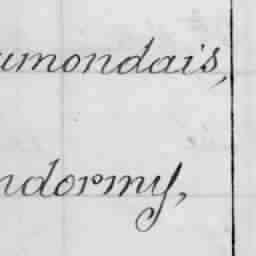 umondais,
ndormy,